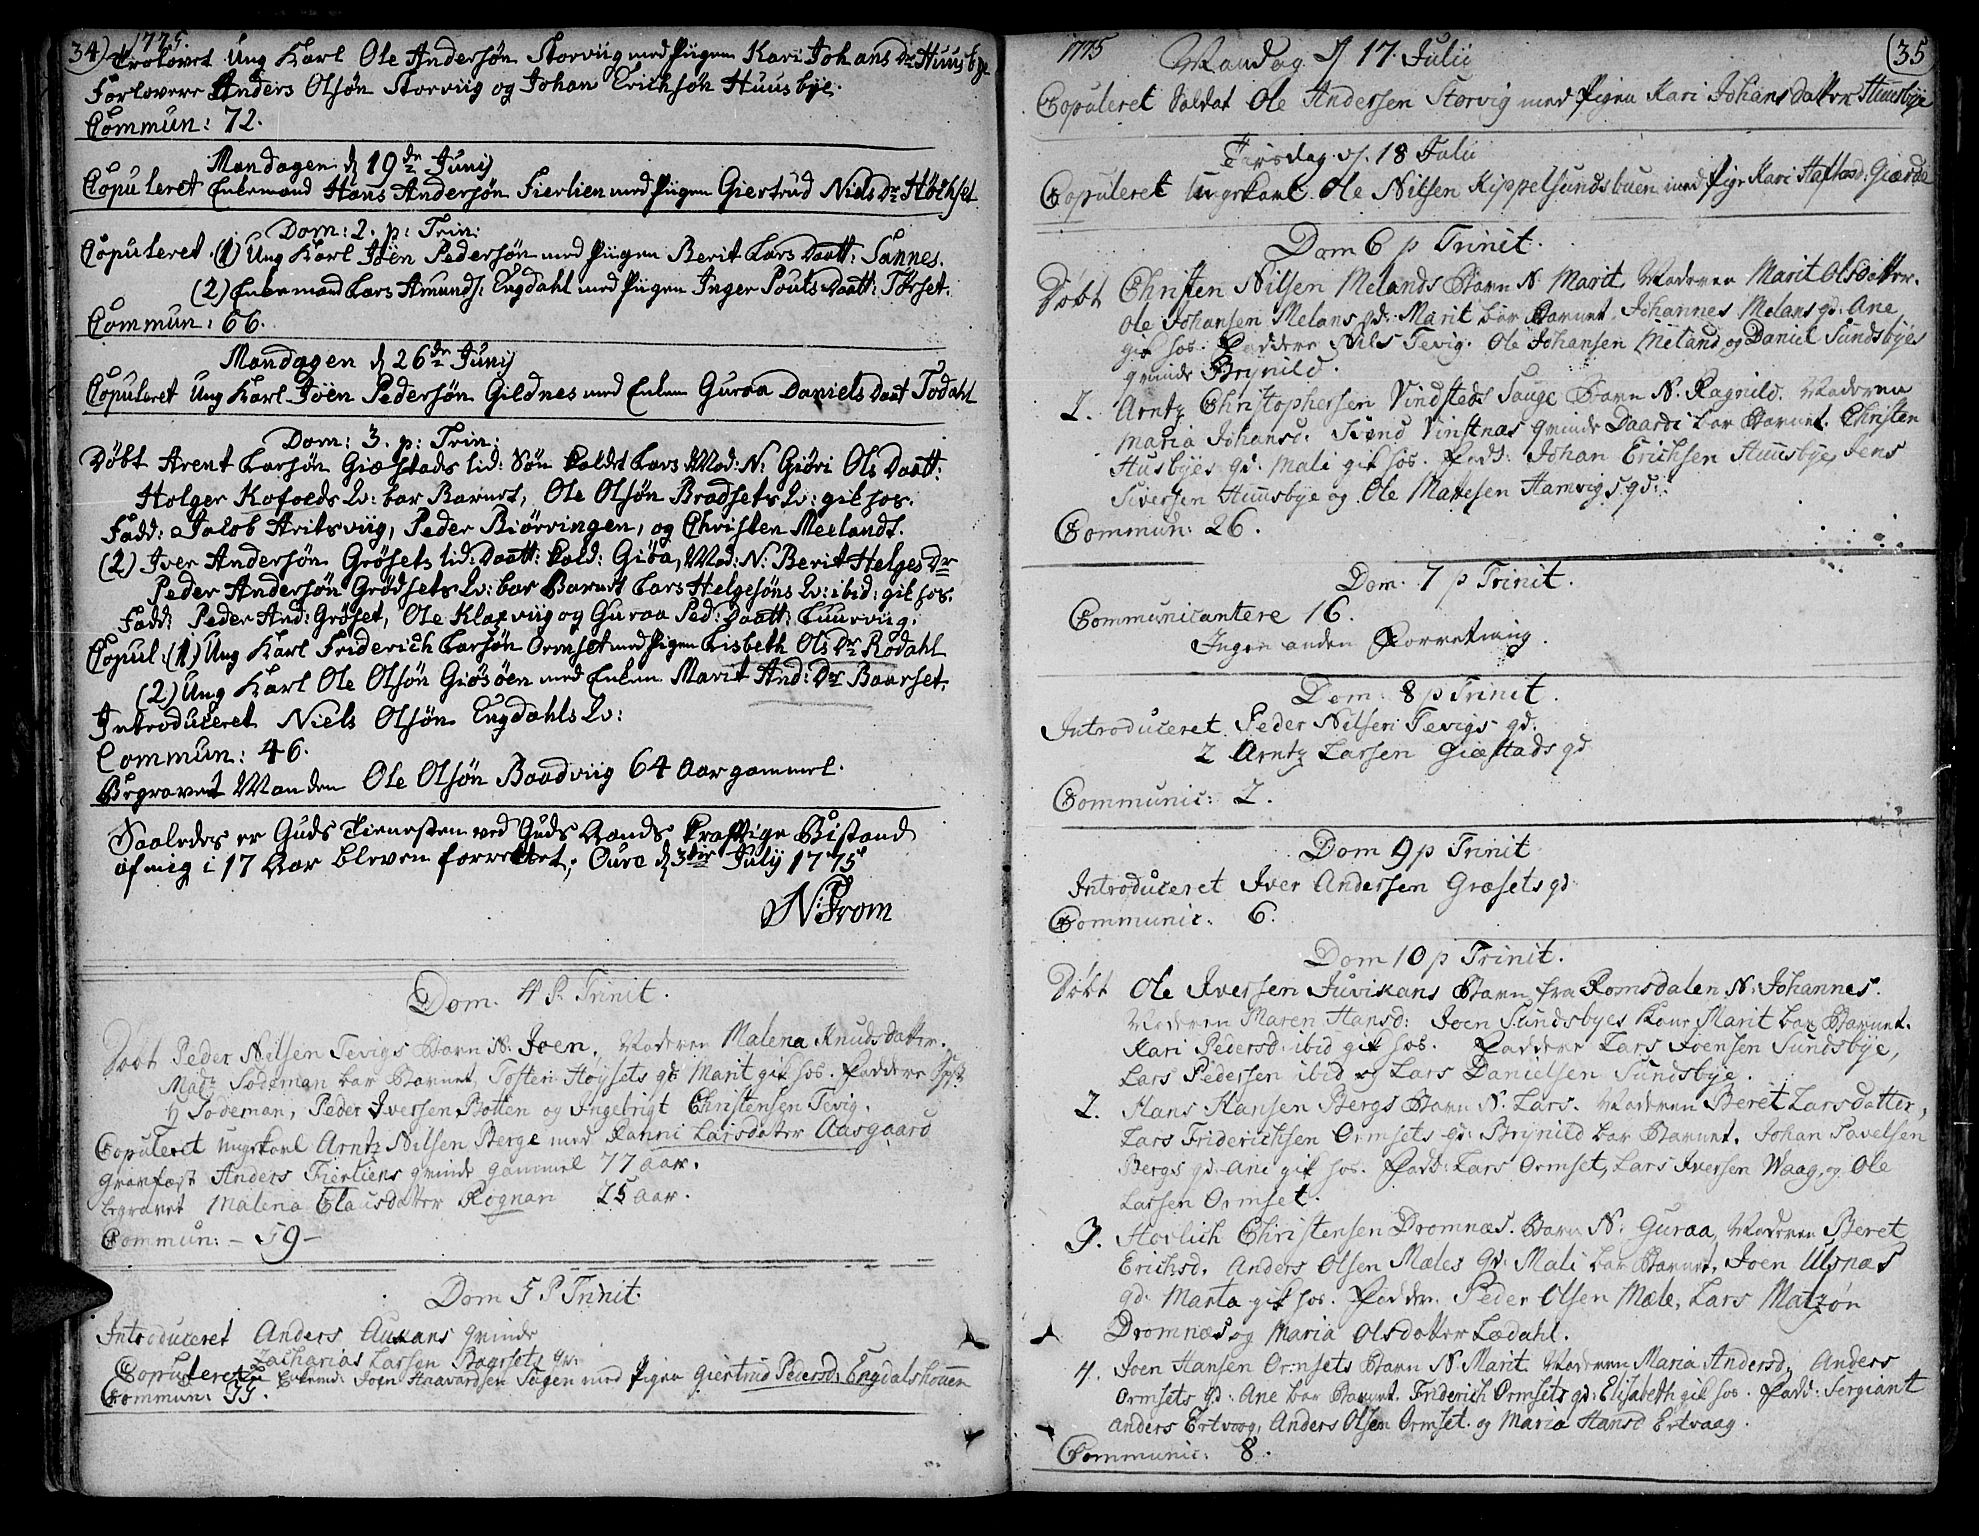 34) 1775.
Trolovet Ung Karl Ole Andersøn Storviig med Piigen Kari Johans Dr Huusbye
Forlovere Anders Olsøn Storviig og Johan Erichsøn Huusbye.
Commun: 72.
Mandagen d 19de Junij
Copuleret Enkemand Hans Andersøn Fierlien med Piigen Giertrud Niels Dr Høchset
Dom: 2. p: Trin:
Copuleret (1) Ung Karl Jöen Pedersøn med Piigen Berit Lars Daatt: Sannes.
(2) Enkemand Lars Amunds: Engdahl med Piigen Inger Pouls Daatt: Tørset.
Commun: 66.
Mandagen d 26de Junij
Copuleret Ung Karl Jöen Pedersøn Gildnes med Enken Guraa Daniels Daat Todahl
Dom: 3. p: Trin:
Døbt Arent Larsøn Giæstads lid: Søn kaldet Lars Mod: N: Giöri Ols Daatt:
Holger Kofoeds Qv: bar Barnet, Ole Olsøn Bradsets Qv: gik hos.
Fadd: Jacob Aritsviig, Peder Biörvingen, og Christen Meelands.
(2) Iver Andersøn Grøsets lid: Daatt: Kald: Giöa, Mod: N: Berit Helges Dr
Peder Andersøn Grødsets Qv: bar Barnet Lars Helgesøns Qv: ibid: gik hos.
Fadd: Peder And: Grøset, Ole Klaxviig og Guraa Ped: Daatt: Cuurviig.
Copul: (1) Ung Karl Friderich Larsøn Ormset med Pigen Lisbeth Ols Dr Rødahl
(2) Ung Karl Ole Olsøn Giøsøen med Enken Marit And: Dr Baarset.
Introduceret Niels Olsøn Engdahls Qv:
Commun: 46.
Begravet Manden Ole Olsøn Baadviig 64 Aar gammel.
Saaledes er Guds Tienesten ved Guds Aands Kraftige Bistand
af mig i 17 Aar bleven forrettet, Oure d 3die Julij 1775
N: From
Dom. 4 P. Trinit.
Døbt Peder Nilsen Tevigs Barn N: Joen, Moderen Malena Knuds datter.
Madz Sodeman bar Barnet, Tosten Høysets qd: Marit gik hos. Faddere
Sodeman, Peder Iversen Botten og Ingebrigt Christensen Tevig.
Copuleret Ungkarl Arntz Nilsen Berge med Ranni Larsdatter Aasgaard
Gravfæst Anders Fierliens qvinde gammel 77 aar.
begravet Malena Clausdatter Rognan 25 aar.
Commun: - 59 -
Dom 5 P Trinit.
Introduceret Anders Aukans qvinde
Zacharias Larsen Baarsets qv.
Copuleret Enkemd: Joen Haavardsen Sagen med Pigen Giertrud Pedersd: Engdalshouen
Commun: 35.
1775 (35
Mandag d 17. Julii
Copuleret Soldat Ole Andersen Storvig med Pigen Kari Johans datter Huusbÿe
Tirsdag d. 18 Julii
Copuleret Ungekarl Ole Nilsen Kyppelsundsbuen med Pige Kari Haftord: Giærde
Dom 6 p Trinit.
Døbt Christen Nilsen Melands Barn N. Marit, Moderen Marit Olsdatter.
Ole Johansen Melans qd: Marit bar Barnet, Johannes Melans qd: Ane
gik hos. Faddere Nils Tevig. Ole Johansen Meland og Daniel Sundsbyes
qvinde Brynild.
2. Arntz Christophersen Vindsteds Sauge Barn N. Ragnild. Moderen
Maria Johansd: Svend Vinstnas qvinde Daardi bar Barnet. Christen
Husbyes qd: Mali gik hos. Fadd: Johan Erichsen Huusbye, Jens
Siversen Huusbye og Ole Matesen Hamvigs qd:
Commun: 26.
Dom. 7 p Trinit.
Communicantere 16.
Ingen anden Forretning.
Dom: 8 p Trinit.
Introduceret Peder Nilsen Tevigs qd:
2 Arntz Larsen Giæstads qd
Communic: 2.
Dom 9 p Trinit
Introduceret Iver Andersen Græsets qd:
Communic. 6.
Dom 10 p Trinit.
Døbt Ole Iversen Juvikans Barn fra Romsdalen N: Johannes.
Moderen Maren Hansd: Joen Sundsbyes kone Marit bar Barnet.
Kari Pedersd: ibid gik hos. Faddere Lars Joensen Sundsbye,
Lars Pedersen ibid og Lars Danielsen Sundsbye.
2. Hans Hansen Bergs Barn N. Lars. Moderen Beret Larsdatter,
Lars Friderichsen Ormsets qd: Brynild bar Barnet. Johan Pavelsen
Bergs qd: Ane gik hos. Fadd: Lars Ormset, Lars Iversen Waag, og Ole
Larsen Ormset.
3. Hovlich Christensen Dromnæs. Barn N: Guraa, Moderen Beret
Ericksd. Anders Olsen Mæles qd: Mali bar Barnet, Joen Ulsnæs
qd: Marta gik hos. Fadder. Peder Olsen Mæle, Lars Matzøn
Dromnæs og Maria Olsdatter Lædahl.
4. Joen Hansen Ormsets Barn N. Marit. Moderen Maria Andersd, Anders
Ormsets qd: Ane bar Barnet. Friderich Ormsets qd: Elisabeth gik hos. Fadd: Sergiant
Anders Ertvaag, Anders Olsen Ormset og Maria Hansd Ertvaag.
Communic: 8.